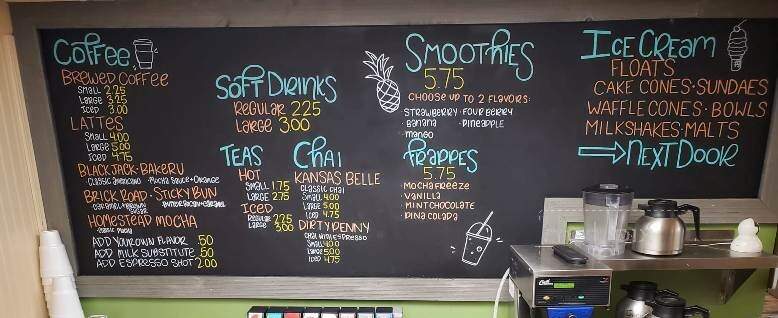 Coffee
Brewed Coffee
Small 2.25
Large 3.25
Iced 3.00
Lattes
Small 4.00
Large 5.00
Iced 4.75
Black Jack · Bakeru
Classic Americano · Mocha Sauce + Orange
Brick Road · Sticky Bun
Caramel + Brown Sugar
Homestead Mocha
Classic Mocha
Add your own flavor .50
Add milk substitute .50
Add espresso shot 2.00
Soft Drinks
Regular 2.25
Large 3.00
Teas
Hot
Small 1.75
Large 2.75
Iced
Regular 2.25
Large 3.00
Chai
Kansas Belle
Classic Chai
Small 4.00
Large 5.00
Iced 4.75
Dirty Penny
Chai with Espresso
Small 4.00
Large 5.00
Iced 4.75
Smoothies
5.75
Choose up to 2 flavors:
Strawberry · Four Berry
Banana · Pineapple
Mango
Frappes
5.75
· Mocha Freeze
· Vanilla
· Mint Chocolate
· Pina Colada
Ice Cream
Floats
Cake Cones · Sundaes
Waffle Cones · Bowls
Milkshakes · Malts
Next Door